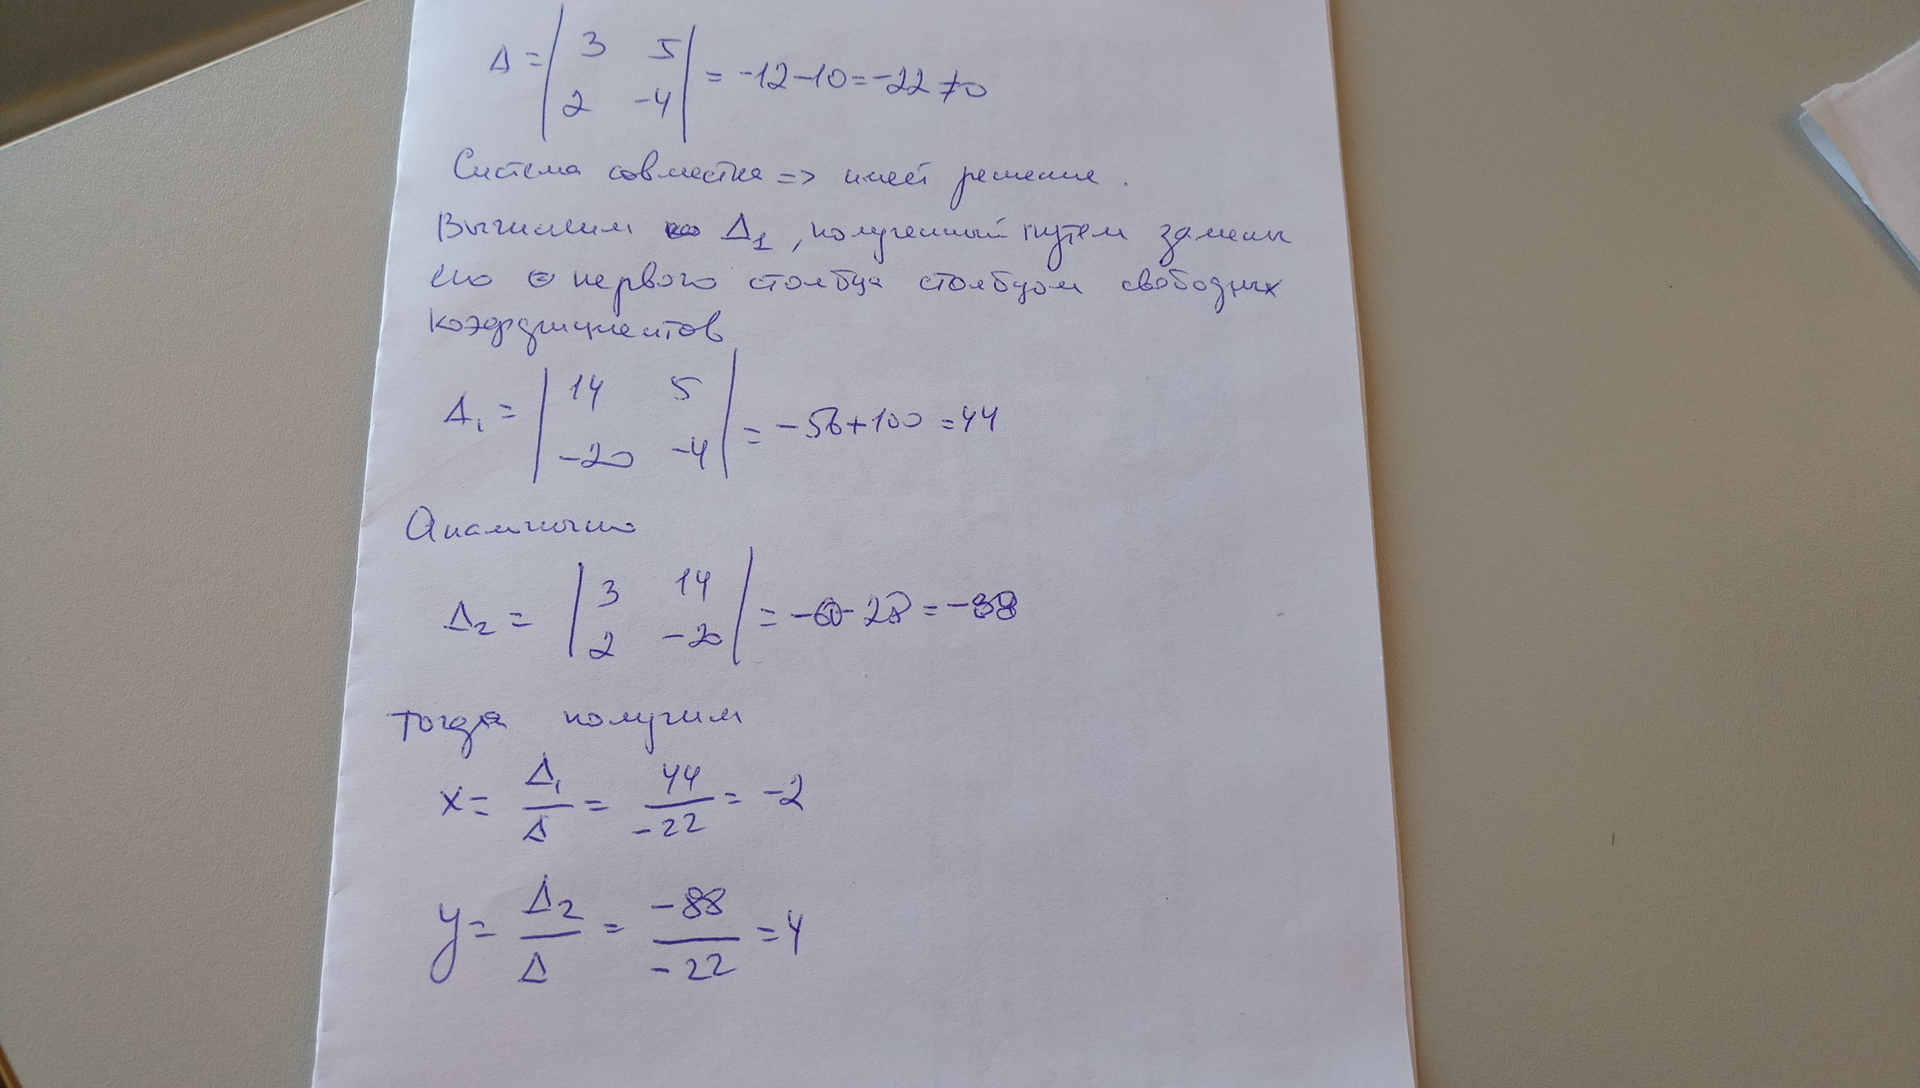 Δ = | 3 5 ; 2 -4 | = -12-10=-22≠0
Система совместна => имеет решение.
Вычислим Δ1, полученный путем замены
его первого столбца столбцом свободных
коэффициентов
Δ1 = | 14 5 ; -20 -4 | = -56+100=44
Аналогично
Δ2 = | 3 14 ; 2 -20 | = -60-28=-88
Тогда получим
x = Δ1/Δ = 44/-22 = -2
y = Δ2/Δ = -88/-22 = 4